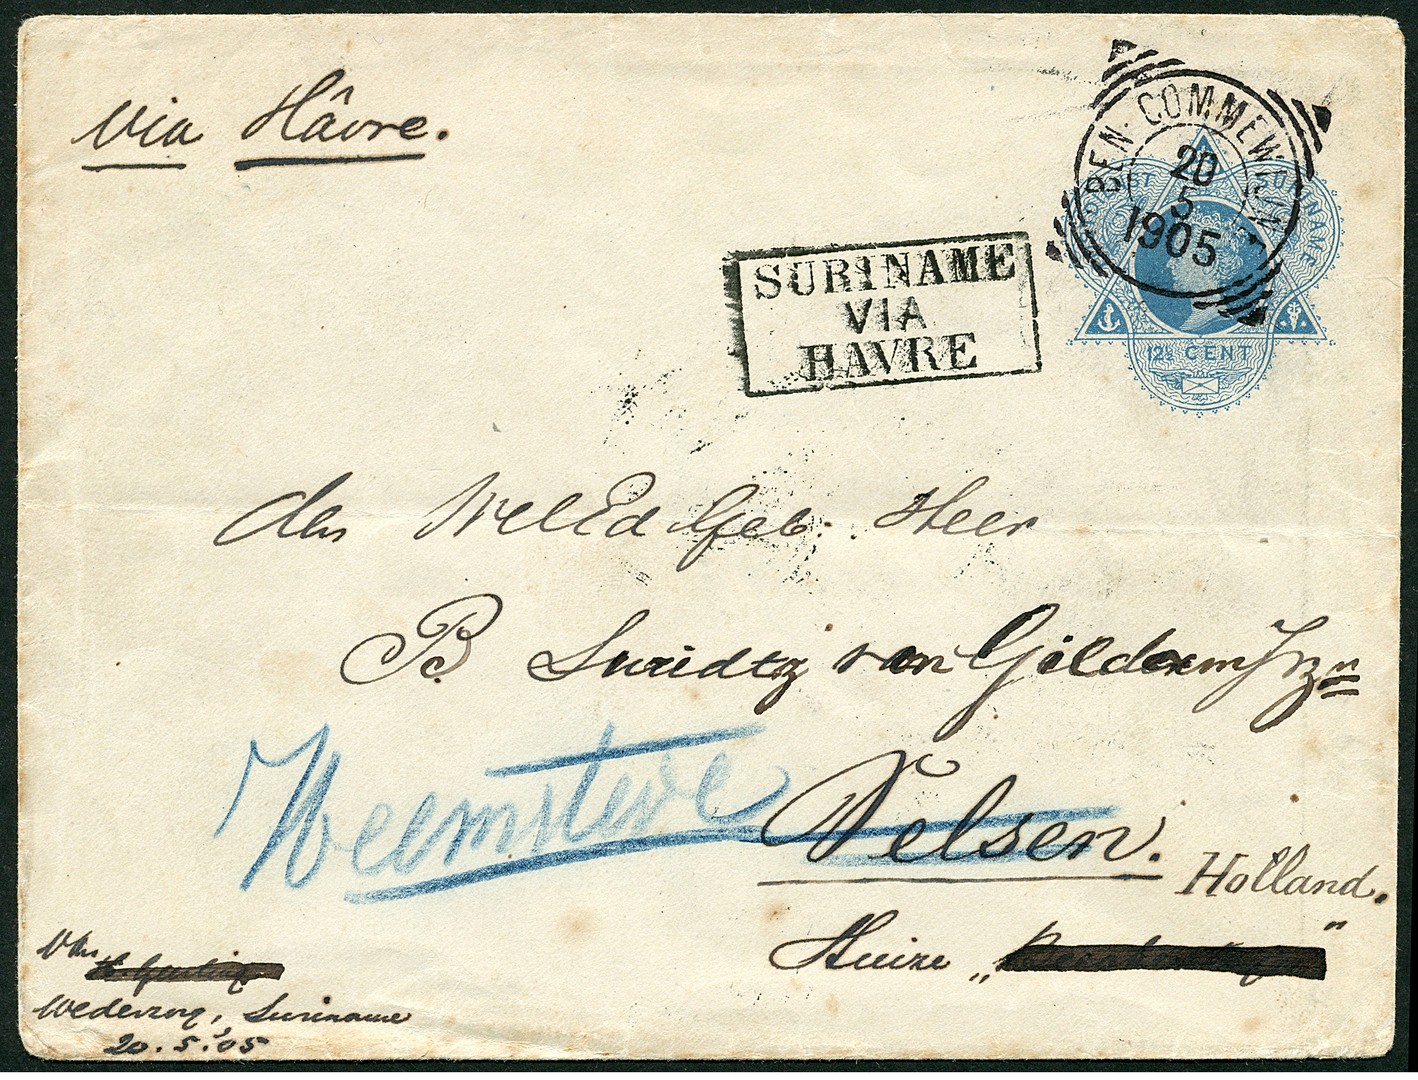 via Hâvre.
BEN. COMMEWIJNE
20
5
1905
SURINAME
12½ CENT
SURINAME
VIA
HAVRE
den WelEdGeb. Heer
B van Gildern
Heemstede
Velsen.
Holland.
Huize „ "
Van
Wederzorg, Suriname
20.5.'05